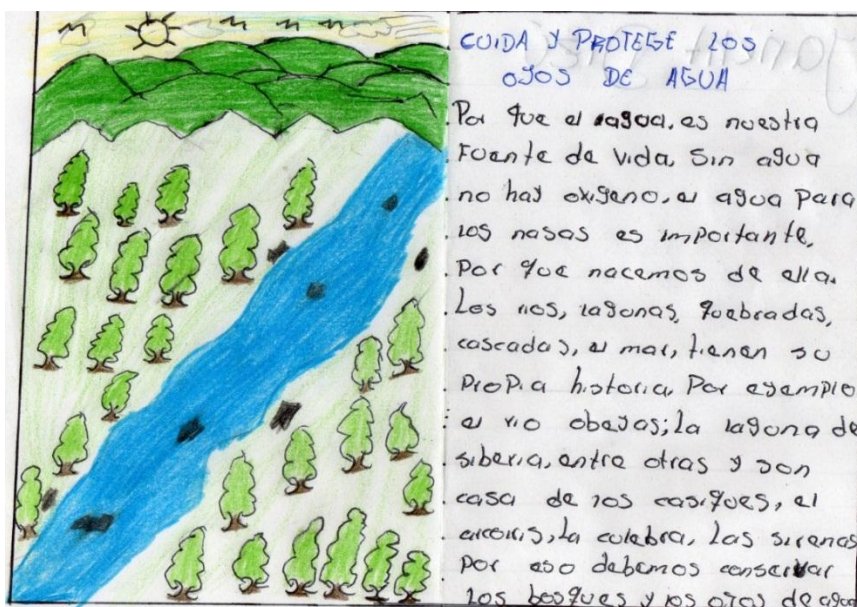 CUIDA Y PROTEGE LOS
OJOS DE AGUA
Por que el agua, es nuestra
Fuente de vida, Sin agua
no hay oxigeno, el agua para
los nasas es importante,
Por que nacemos de ella.
Los rios, lagunas, quebradas,
cascadas, el mar, tienen su
propia historia, Por egemplo
el rio obejas; la laguna de
siberia, entre otras y son
casa de los casiques, el
arcoiris, la culebra, Las sirenas
Por eso debemos conservar
Los bosques y los ojos de agua